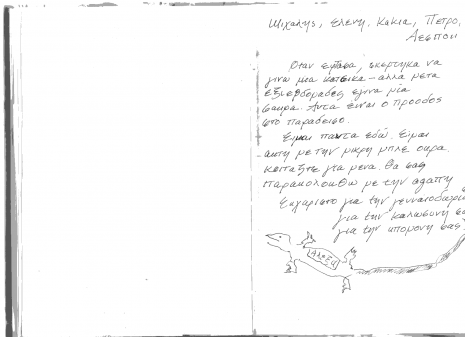 Μιχαλης, Ελενη, Κακια, Πετρο,
Δεσποι
Οταν εφτασα, σκεφτηκα να
γινω μια κατσικα – αλλα μετα
εξι εβδομαδες εγινα μία
σαυρα. Αυτα ειναι ο προοδος
στο παραδεισο.
Ειμαι παντα εδώ. Ειμαι
αυτη με την μικρη μπλε ουρα.
Κοιταξτε για μενα. Θα σας
παρακολουθω με την αγαπη
Ευχαριστο για την γενναιοδωρι
για την καλωσυνη σα
για την υπομονη σας